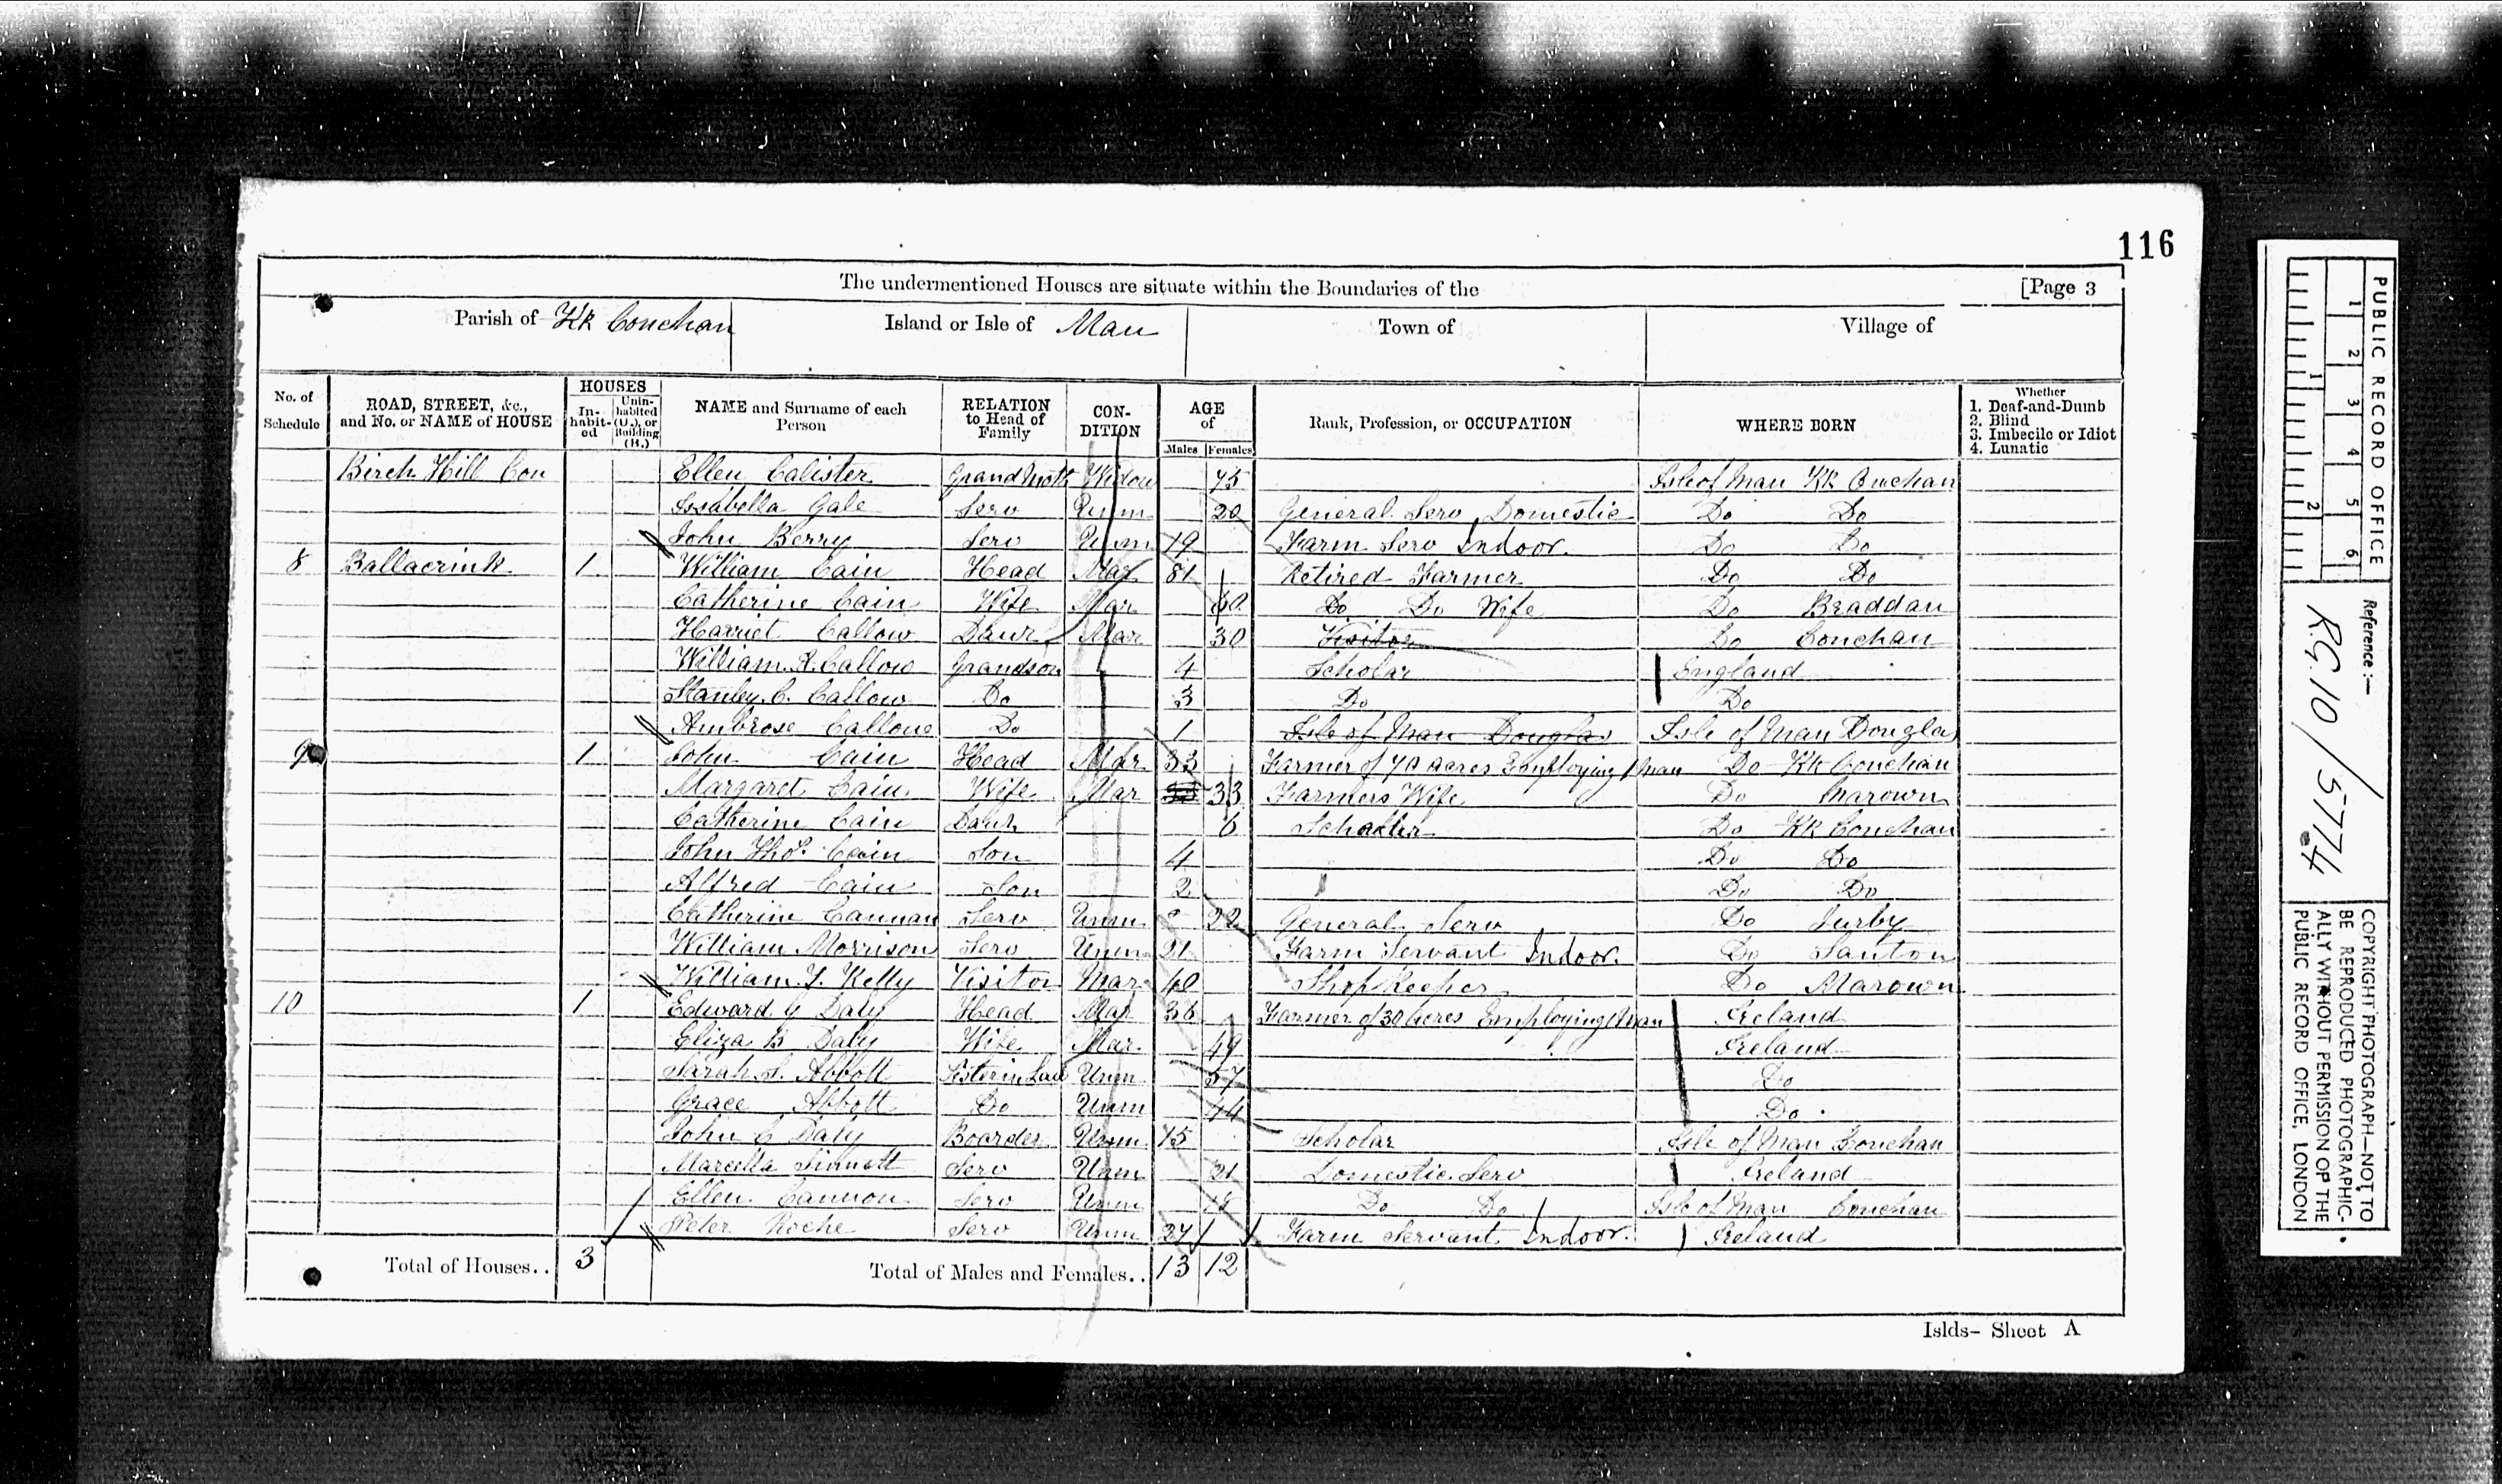 116
The undermentioned Houses are situate within the Boundaries of the [Page 3
Parish of Kk Conchan Island or Isle of Man Town of Village of
No. of Schedule ROAD, STREET, &c., and No. or NAME of HOUSE HOUSES In-habit-ed Unin-habited (U.), or Building (B.) NAME and Surname of each Person RELATION to Head of Family CON-DITION AGE of Males Females Rank, Profession, or OCCUPATION WHERE BORN Whether 1. Deaf-and-Dumb 2. Blind 3. Imbecile or Idiot 4. Lunatic
Birch Hill Con Ellen Calister Grand Moth Widow 75 Isle of Man Kk Conchan
Issabella Gale Serv Unm 20 General Serv Domestic Do Do
John Berry Serv Unm 19 Farm Serv Indoor. Do Do
8 Ballacrink 1 William Cain Head Mar 81 Retired Farmer Do Do
Catherine Cain Wife Mar 60 Do Do Wife Do Braddan
Harriet Callow Daur Mar 30 Visitor Do Conchan
William. R. Callow Grandson 4 Scholar England
Stanley. C. Callow Do 3 Do Do
Ambrose Callow Do 1 Isle of Man Douglas Isle of Man Douglas
9 1 John Cain Head Mar 33 Farmer of 70 acres Employing 1 man Do Kk Conchan
Margaret Cain Wife Mar 33 Farmers Wife Do Marown
Catherine Cain Daur 6 Scholar Do Kk Conchan
John Thos. Cain Son 4 Do Do
Alfred Cain Son 2 Do Do
Catherine Cannan Serv Unm 22 General Serv Do Jurby
William Morrison Serv Unm 21 Farm Servant Indoor. Do Santon
William. J. Kelly Visitor Mar 40 Shop Keeper Do Marown
10 1 Edward G Daly Head Mar 36 Farmer of 30 Acres Employing 1 man Ireland
Eliza B Daly Wife Mar 49 Ireland
Sarah. S. Abbott Sister in Law Unm 57 Do
Grace Abbott Do Unm 44 Do
John C Daly Boarder Unm 15 Scholar Isle of Man Conchan
Marcella Sinnott Serv Unm 21 Domestic. Serv Ireland
Ellen Cannon Serv Unm 18 Do Do Isle of Man Conchan
Peter Roche Serv Unm 27 Farm Servant Indoor. Ireland
Total of Houses.. 3 Total of Males and Females.. 13 12
Islds- Sheet A
PUBLIC RECORD OFFICE
1 2 3 4 5 6
1 2
Reference:-
R.G. 10/5774
COPYRIGHT PHOTOGRAPH—NOT TO
BE REPRODUCED PHOTOGRAPHIC-
ALLY WITHOUT PERMISSION OF THE
PUBLIC RECORD OFFICE, LONDON